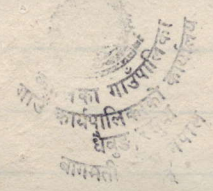 का गाउँपालिका
गाउँ कार्यपालिकाको कार्यालय
धैवुङ
बागमती